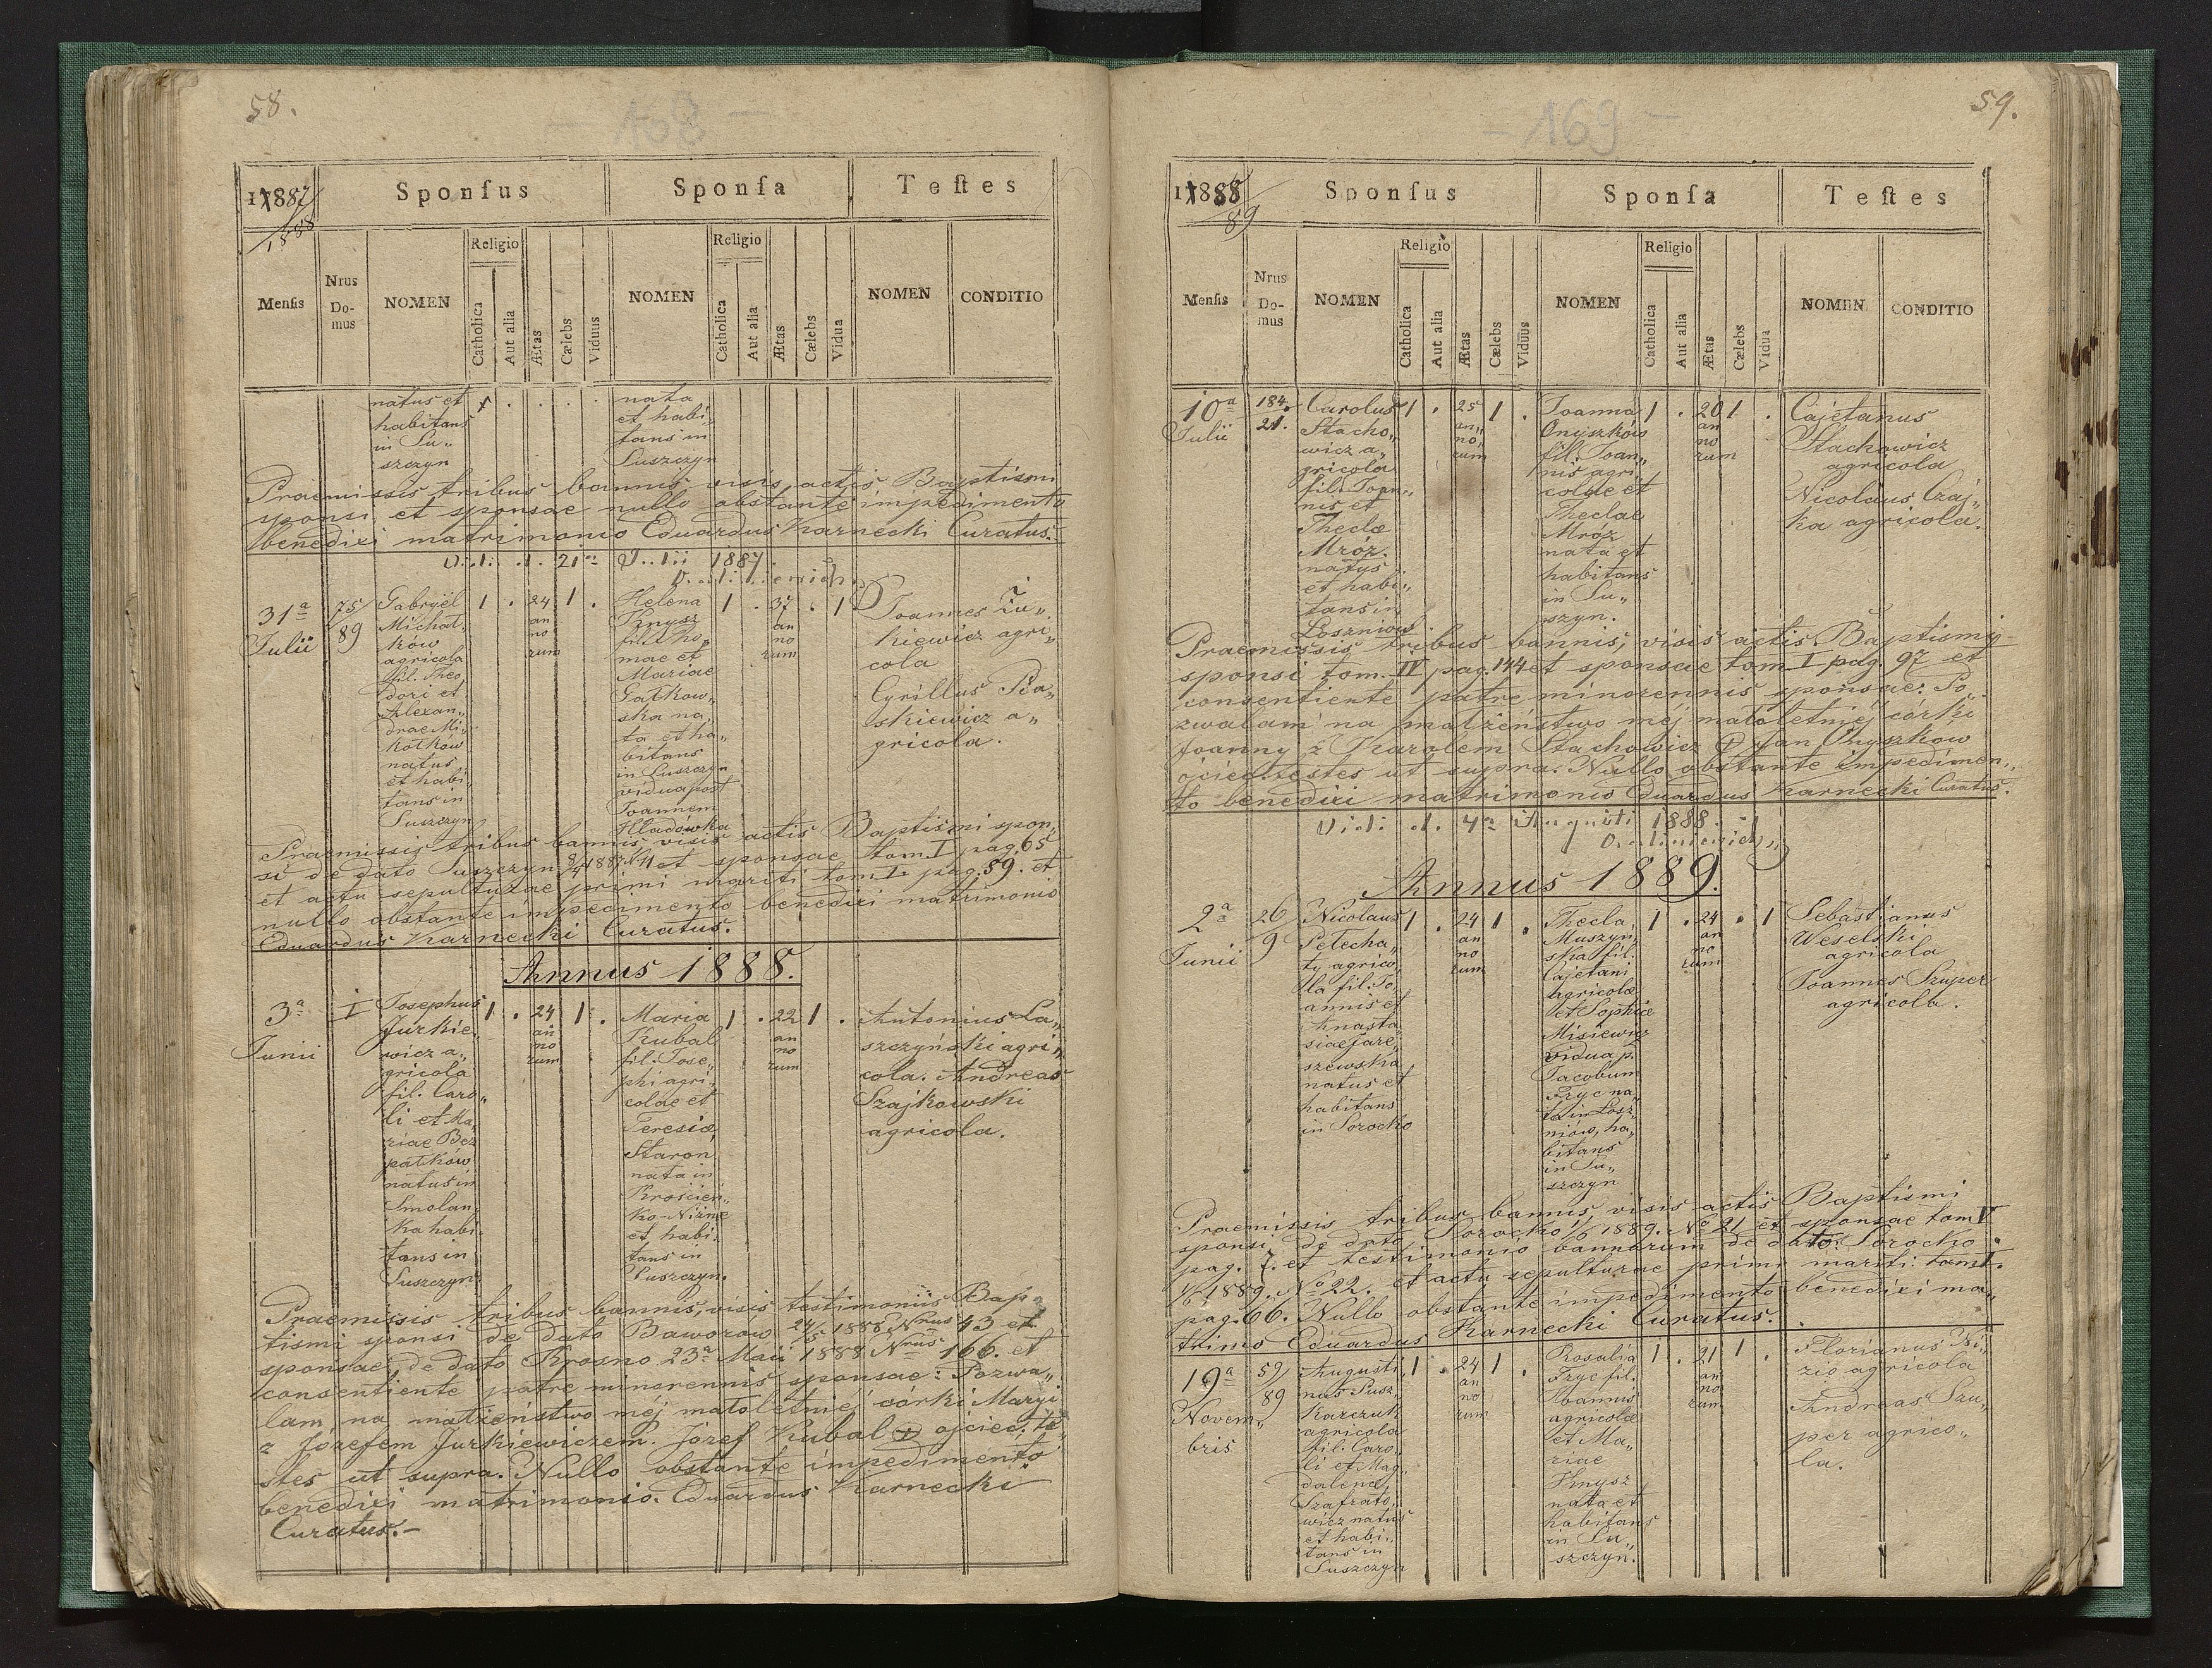 58.
— 168 —
17887/1888
Sponſus
Sponſa
Teſtes
Menſis
Nrus Do-mus
NOMEN
Religio
Catholica
Aut alia
Ætas
Cælebs
Viduus
NOMEN
Religio
Catholica
Aut alia
Ætas
Cælebs
Vidua
NOMEN
CONDITIO
natus et
habitans
in Su„
szczyn
nata
et habi„
tans in
Suszczyn
Praemissis tribus bannis, visis actis Baptismi
sponsi et sponsae nullo obstante impedimento
benedixi matrimonio Eduardus Karnecki Curatus.
21a 1887
31a
Julii
75/89
Gabryël
Michał„
ków
agricola
fil. Theo„
dori et
Alexan„
drae Mi„
kołków
natus
et habi„
tans in
Suszczyn
1 . 24 1 .
an
no
rum
Helena
Knysz
fil. Ko„
mae et
Mariae
Gałkow„
ska na„
ta et ha„
bitans
in Suszczyn
vidua post
Joannem
Hładówka
1 . 37 . 1
an
no
rum
Joannes Żu„
kiewicz agri„
cola
Cyrillus Pia„
skiewicz a„
gricola.
Praemissis tribus bannis, visis actis Baptismi spon„
si de dato Suszczyn 8/7 1887 N 11 et sponsae tom. I pag. 65
et actu sepulturae primi mariti tom. I. pag. 59. et
nullo obstante impedimento benedixi matrimonio
Eduardus Karnecki Curatus.
Annus 1888.
3a
Junii
1
Josephus
Jurkie„
wicz a„
gricola
fil. Caro„
li et Ma„
riae Bez
patków
natus in
Smolan„
ka habi„
tans in
Suszczyn
1 . 24 1 .
an
no
rum
Maria
Kubal
fil. Jose„
phi agri„
colae et
Teresiae
Staron
nata in
Krościen„
ko-Niżne
et habi„
tans in
Suszczyn.
1 . 22 1 .
an
no
rum
Antonius La„
szczyński agri„
cola. Andreas
Szajkowski
agricola.
Praemissis tribus bannis, visis testimoniis Bap„
tismi sponsi de dato Baworów 24/5 1888 Nrus 43 et
sponsae de dato Krosno 23a Maii 1888 Nrus 166. et
consentiente patre minorennis sponsae: Pozwa„
lam na małżeństwo méj małoletniéj córki Maryi
z Józefem Jurkiewiczem. Józef Kubal + ojciec, te„
stes ut supra. Nullo obstante impedimento
benedixi matrimonio. Eduardus Karnecki
Curatus.—
59.
— 169 —
17888/89
Sponſus
Sponſa
Teſtes
Menſis
Nrus Do-mus
NOMEN
Religio
Catholica
Aut alia
Ætas
Cælebs
Viduus
NOMEN
Religio
Catholica
Aut alia
Ætas
Cælebs
Vidua
NOMEN
CONDITIO
10a
Julii
184.
21.
Carolus
Stacho„
wicz a„
gricola
fil. Joan„
nis et
Theclæ
Mróz.
natus
et habi„
tans in
Łoszniów
1 . 25 1 .
an„
no„
rum
Joanna
Onyszków
fil. Joan„
nis agri„
colae et
Theclae
Mróz
nata et
habitans
in Su„
szyn.
1 . 20 1 .
an
no
rum
Cajetanus
Stachowicz
agricola
Nicolaus Czaj„
ka agricola.
Praemissis tribus bannis, visis actis Baptismi
sponsi tom. IV pag. 144 et sponsae tom. I pag. 97 et
consentiente patre minorennis sponsae: Po„
zwalam na małżeństwo méj małoletniéj córki
Joanny z Karolem Stachowicz + Jan Onyszków
ojciec, testes ut supra. Nullo obstante impedimen„
to benedixi matrimonio Eduardus Karnecki Curatus.
Vidi d. 4a Augusti 1888.
Annus 1889.
2a
Junii
26/9
Nicolaus
Pełecha„
ty agrico„
la fil. Jo„
annis et
Anasta„
siae Jare„
szewska
natus et
habitans
in Sorocko
1 . 24 1 .
an
no
rum
Thecla
Muszyń„
ska fil.
Cajetani
agricolae
et Sophiæ
Misiewicz
vidua p.
Jacobum
Fryc na„
ta in Łosz„
niów, ha„
bitans
in Su„
szczyn
1 . 24 . 1
an
no
rum
Sebastianus
Weselski
agricola
Joannes Szuper
agricola.
Praemissis tribus bannis, visis actis Baptismi
sponsi de dato Sorocko 1/6 1889. No 21 et sponsae tom V
pag. 7. et testimonio bannorum de dato Sorocko
1/6 1889. No 22. et actu sepulturae primi mariti tom I.
pag. 66. Nullo obstante impedimento benedixi ma„
trimo Eduardus Karnecki Curatus.
19a
Novem„
bris
59/89
Augusti„
nus Susz„
Karczuk
agricola
fil. Caro„
li et Mag„
dalena
Szafrato„
wicz natus
et habi„
tans in
Suszczyn
1 . 24 1 .
an
no
rum
Rosalia
Fryc fil.
Joannis
agricolae
et Ma„
riae
Knysz
nata et
habitans
in Su„
szczyn.
1 . 21 1 .
an
no
rum
Florianus Ni„
zio agricola
Andreas Szu„
per agrico„
la.